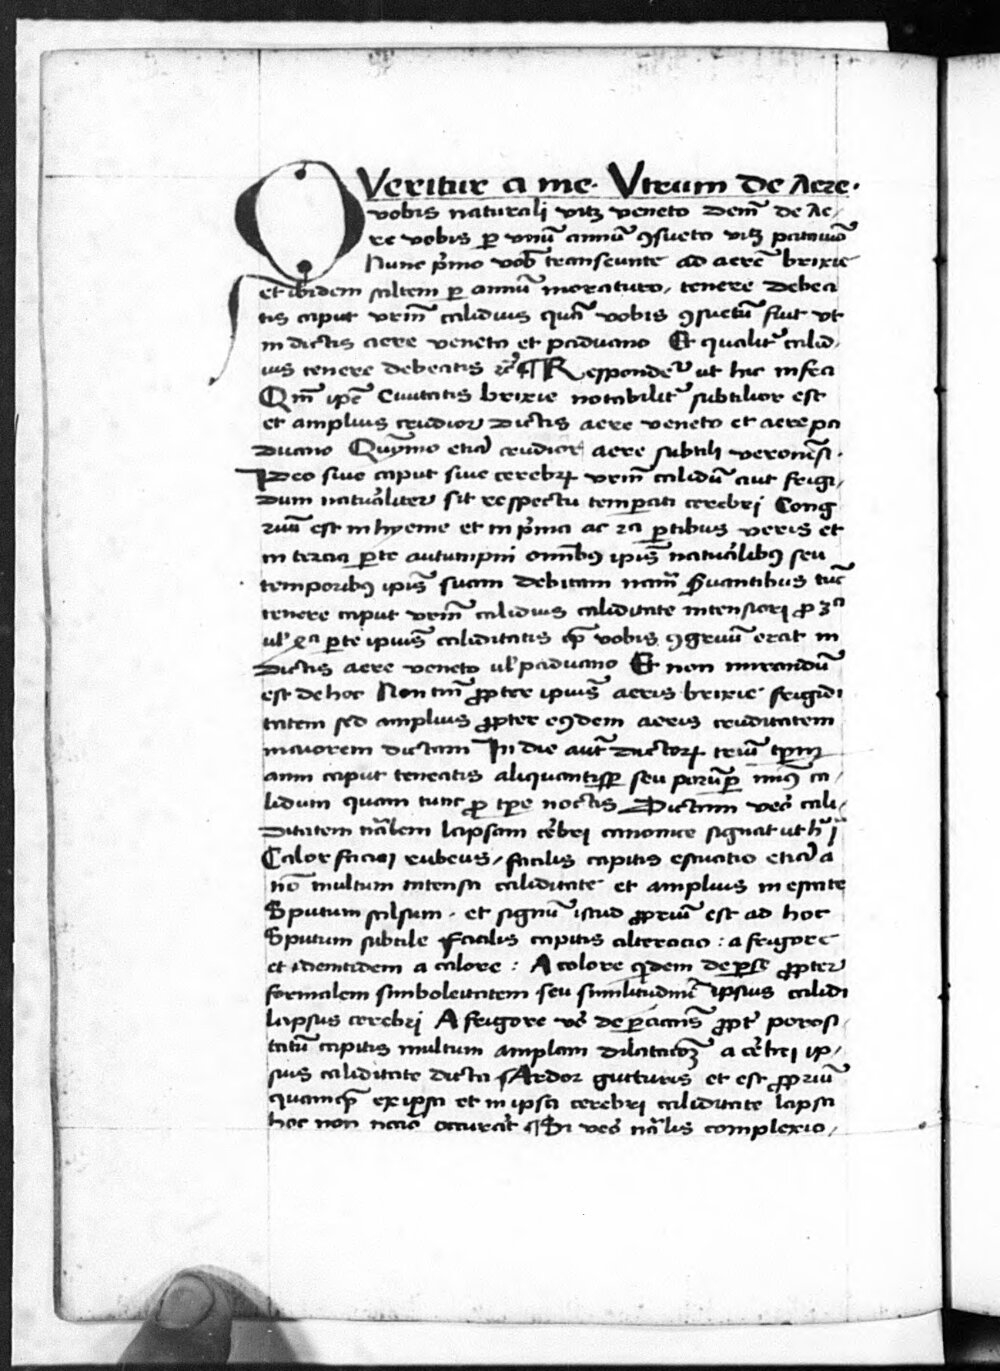 QVeritur a me. Vtrum de Aere.
vobis naturali vitꝫ veneto dem̄ de Ae/
re vobis ꝑ vnū annū ꝯsueto vitꝫ patauīo
Nunc p̄mo vob̄ transeunte ad aerē brixie
et ibidem saltem ꝑ annū moraturo, tenere debea
tis caput vrm̄ calidius qm̄ vobis ꝯsuetū fuit vt
in dictis aere veneto et paduano Et qualitr̄ calid/
ius tenere debeatis ⁊c̄ ¶ Respondet̄ ut hic infra
Qm̄ ip̄e Ciuitatis brixie notabilitr̄ subtilior est
et amplius crudior dictis aere veneto et aere pa
duano Quīmo etiā crudior aere subtili veronēsi.
Ideo siue caput siue cerebrꝫ vrm̄ calidū aut frigi/
dum naturaliter sit respectu temperati cerebri Cong
ruū est in hyeme et in p̄ma ac 2a ꝑtibus veris et
in tercia ꝑte autumpni omībꝰ ipīs natūalibꝰ seu
temporibꝰ ipīs suam debitam nam̄ ẜuantibus tūc
tenere caput vrm̄ calidius caliditate intensiori ꝓ 3a
ul̓ 4a ꝑte ipīus caliditatis qꝫ vobis ꝯgruū erat in
dictis aere veneto ul̓ paduano Et non mirandū
est de hoc Non tm̄ ꝓpter ipīus aeris brixie frigidi
tatem sed amplius ꝓpter eiꝰdem aeris cruditatem
maiorem dictam In die aut̄ dictorꝝ triū tꝑm
anni caput teneatis aliquantisꝑ seu parūꝑ minꝰ ca/
lidum quam tunc ꝓ tꝑe noctis Dictam vero cali/
ditatem nālem lapsam cērbri canonice signāt ut hic ī
Calor faciei rubeus, facilis capitis estuatio etiā a
nō multum intensa caliditate et amplius in estate
Sputum salsum. et signū istud ꝓpriū est ad hoc
Sputum subtile Facilis capitis alteracio : a frigore
et idemtidem a calore : A colore qͥdem de ꝑ se ꝓpter
formalem simboleitatem seu similitudinē ipsius calidi
lapsus cerebri A frigore vō de ꝑ accins ꝓpt̄ porosi/
tatū capitis multum amplam dilatacōꝫ a cērbri ip/
sius caliditate dicta Ardor gutturis et est ꝓpriū
quamqꝫ ex ipsa et in ipsa cerebri caliditate lapsa
hoc non raro occurāt ¶ Si vero nālis complexio,